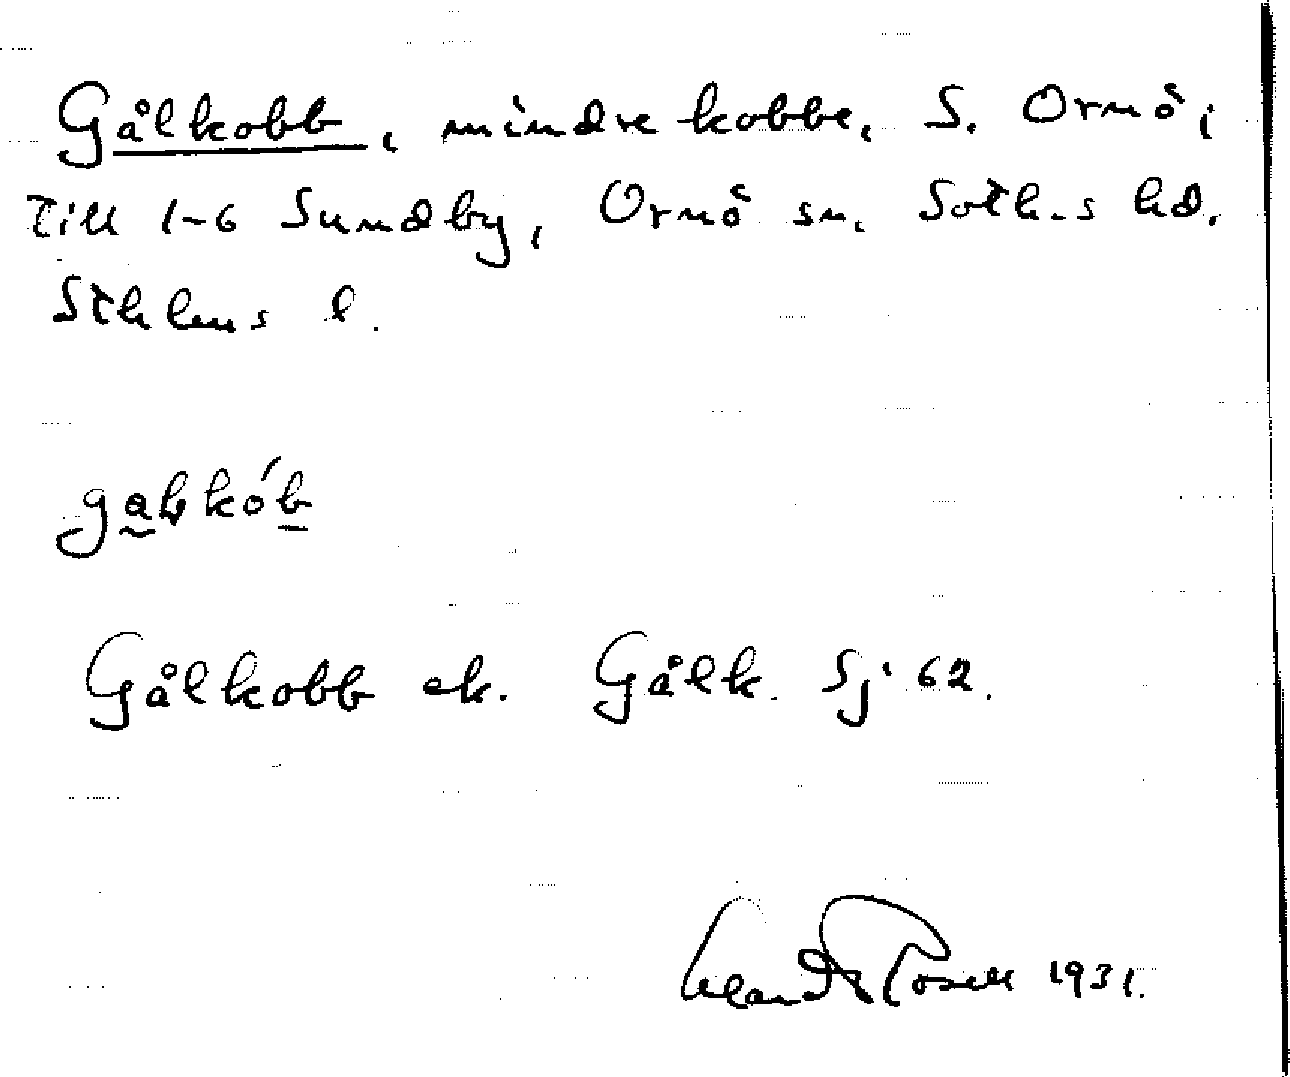 Gålkobb, mindre kobbe, S. Ornö,
till 1-6 Sundby, Ornö sn. Soth-s hd.
Sthlms l.
Gålkobb ek. Gålk. Sj. 62.
1931.